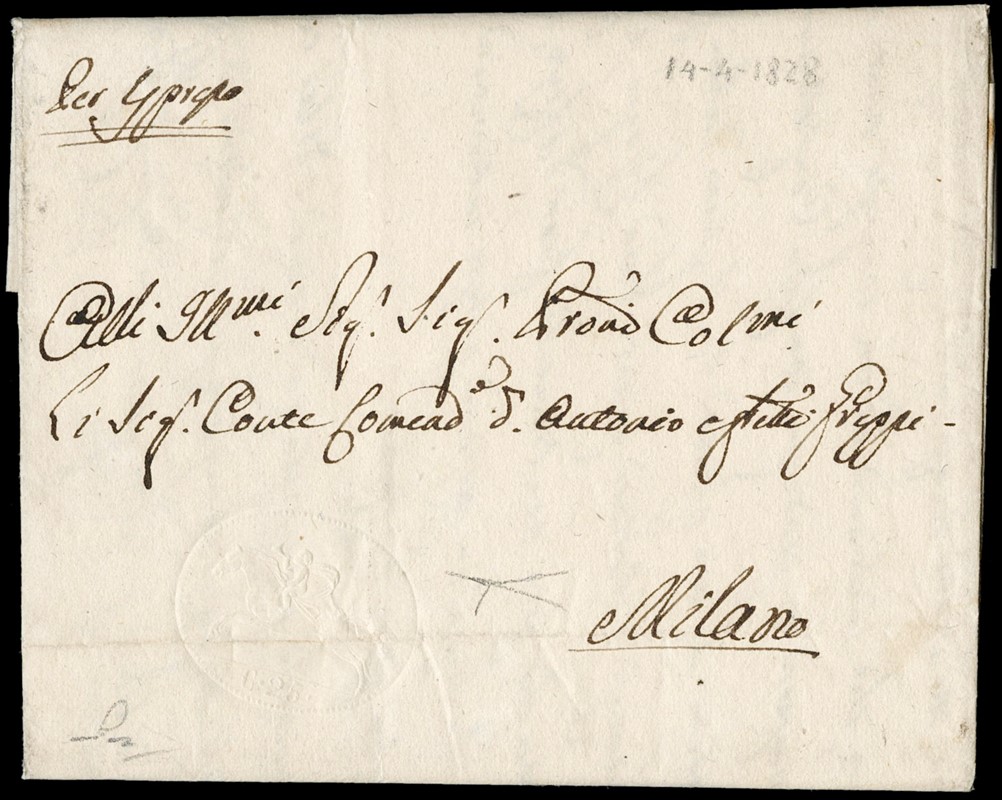 Per Espreso
14-4-1828
Alli Illmi. Sigr. Sigr. Proni Colmi
Li Sigr. Conte Comend.e d. Antonio e flli Greppi -
Milano
C. 25